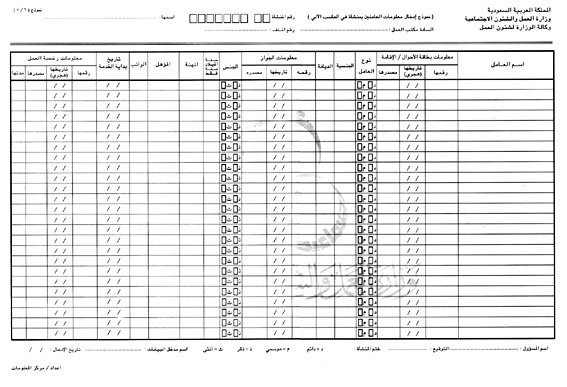 المملكة العربية السعودية
وزارة العمل والشئون الاجتماعية
وكالة الوزارة لشئون العمل
( نموذج إدخال معلومات العاملين بمنشاة في الحاسب الآلي ) رقم المنشاة اسمها :
السادة مكتب العمل : رقم الملف :
نموذج ( ١ / ٢ )
اسم العامل معلومات بطاقة الأحوال / الإقامة نوع العامل الجنسية الديانة معلومات الجواز الجنس سنة الميلاد فقط المهنة المؤهل الراتب تاريخ بداية الخدمة معلومات رخصة العمل
رقمها تاريخها (هجري) مصدرها رقمه تاريخها (هجري) مصدره رقمها تاريخها (هجري) مصدرها مدتها
وزارة العمل
اسم المسؤول : التوقيع : ختم المنشاة : د = دائم م = موسمي ذ = ذكر ث = أنثى اسم مدخل البيانات : تاريخ الإدخال : / /
اعداد / مركز المعلومات